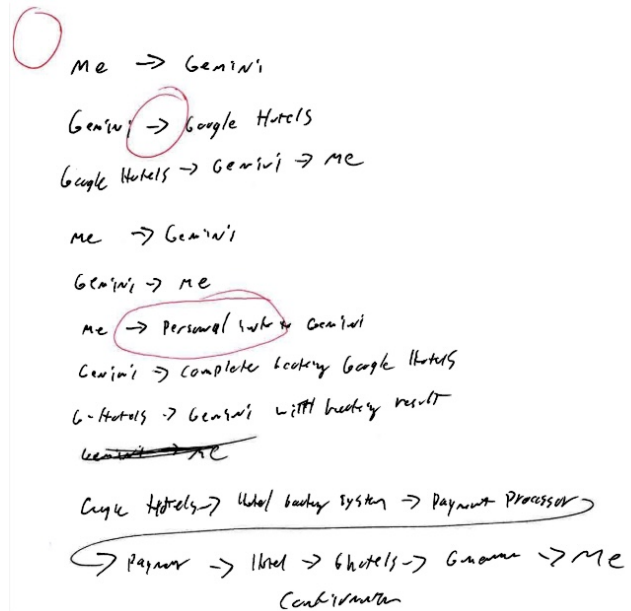 Me → Gemini
Gemini → Google Hotels
Google Hotels → Gemini → Me
Me → Gemini
Gemini → Me
Me → Personal info to Gemini
Gemini → complete booking Google Hotels
G-Hotels → Gemini with booking result
Gemini → Me
Google Hotels → Hotel booking system → Payment Processor
→ Payment → Hotel → Ghotels → → Me
Confirmation